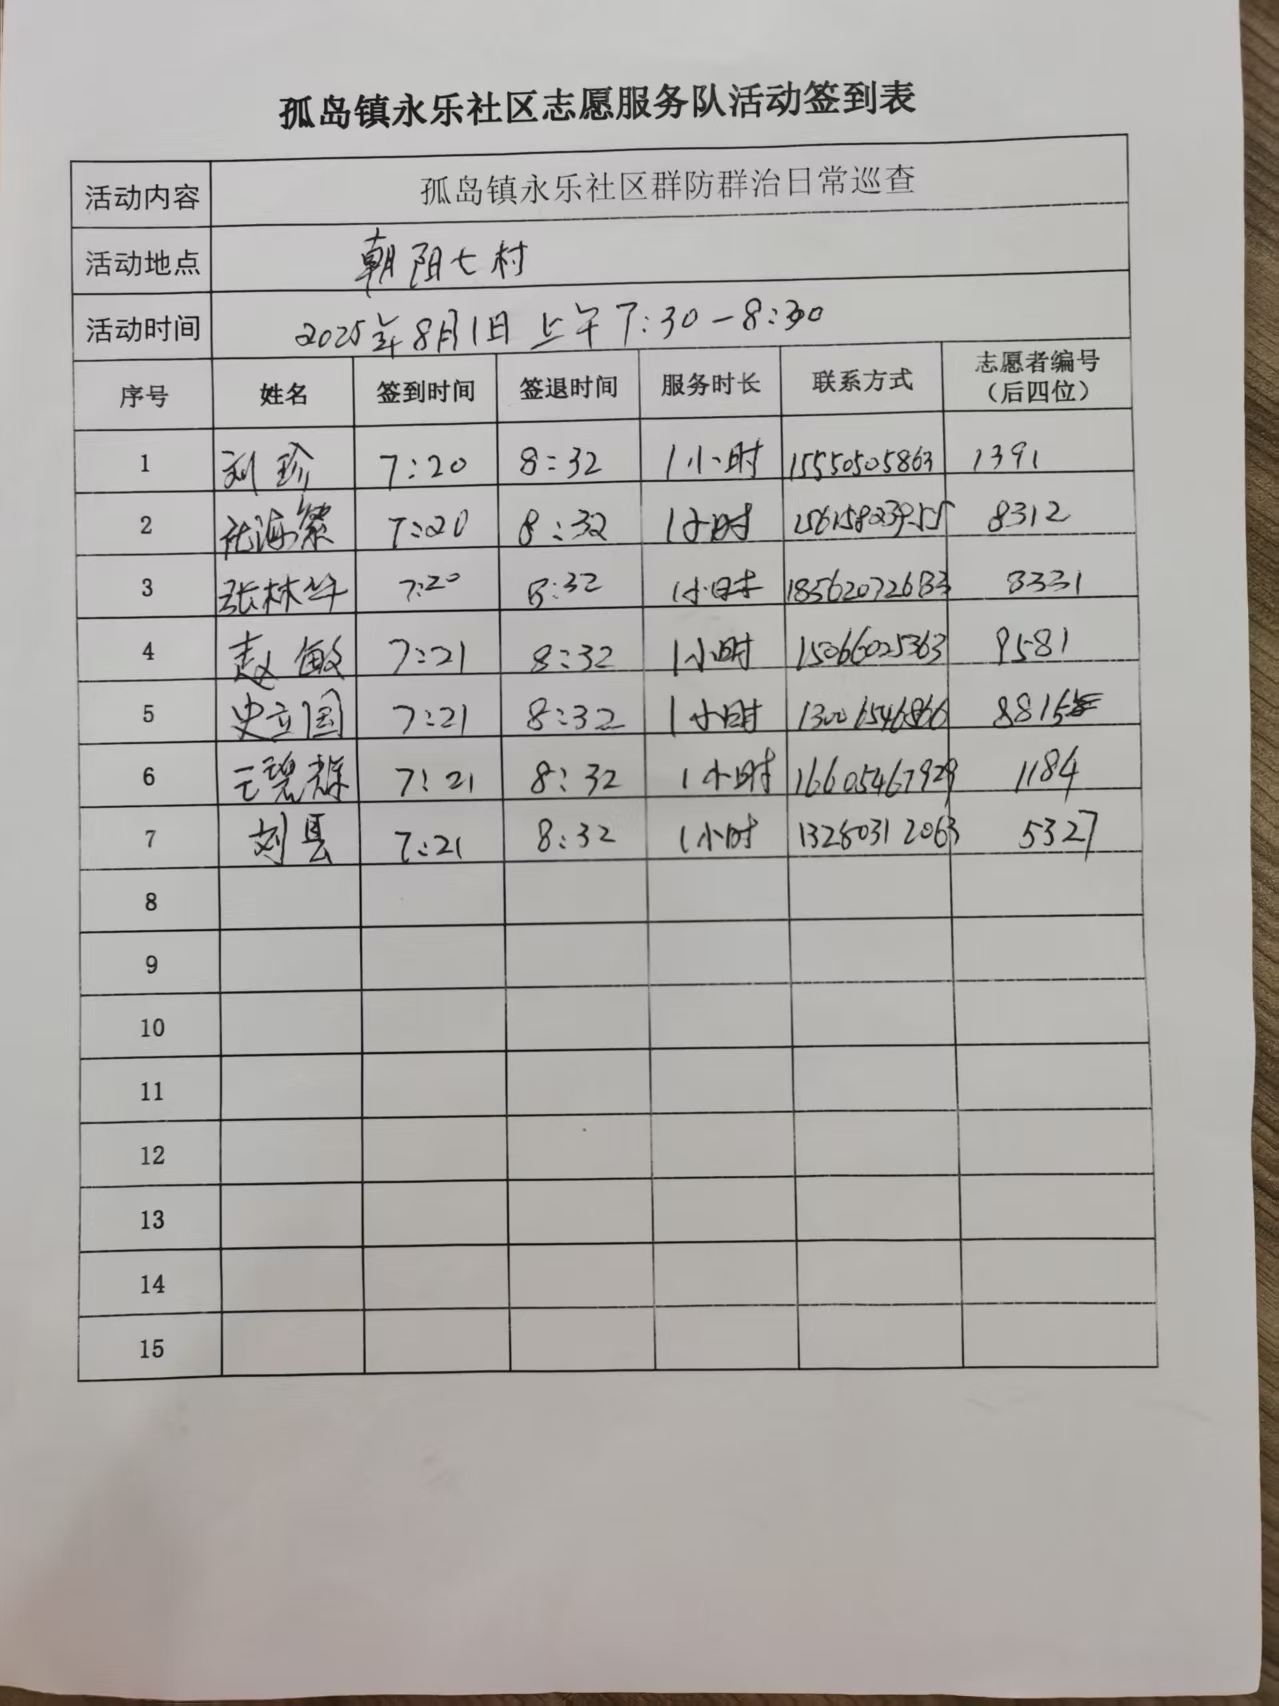 孤岛镇永乐社区志愿服务队活动签到表
活动内容 孤岛镇永乐社区群防群治日常巡查
活动地点 朝阳七村
活动时间 2025年8月1日 上午7:30-8:30
序号 姓名 签到时间 签退时间 服务时长 联系方式 志愿者编号（后四位）
1 刘珍 7:20 8:32 1小时 15550505863 1391
2 7:20 8:32 1小时 8312
3 张林华 7:20 8:32 1小时 8331
4 赵敏 7:21 8:32 1小时 15066025363 9581
5 史立国 7:21 8:32 1小时 13001546866 8815
6 王碧群 7:21 8:32 1小时 16605467929 1184
7 刘县 7:21 8:32 1小时 13280312063 5327
8
9
10
11
12
13
14
15